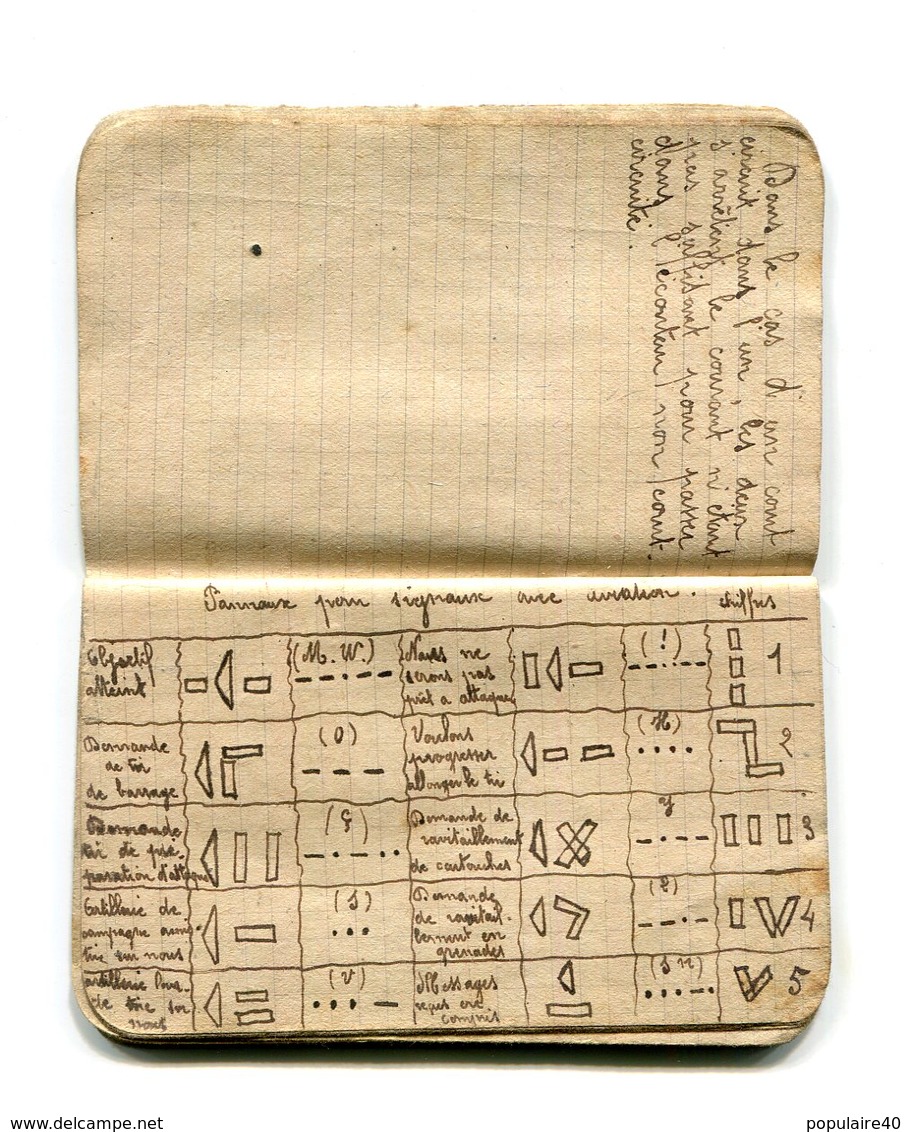 Dans le cas d'un court
circuit dans l'un, les deux
s'arrêtent le courant n'étant
pas suffisant pour passer
dans l'écouteur non court.
circuité.
Panneaux pour signaux avec aviation. chiffres
Objectif
atteint
(M. W.)
Nous ne
serons pas
prêt a attaquer
(!)
1
Demande
de tir
de barrage
(O)
Voulons
progresser
allongez le tir
(H)
2
Demande
tir de pré-
paration d'attaque
(Ç)
Demande de
ravitaillement
de cartouches
Y
3
Artillerie de
campagne amie
tire sur nous
(S)
Demande
de ravitail-
lement en
grenades
4
artillerie lour-
de tire sur
nous
(V)
Messages
reçus et
compris
5
www.delcampe.net
populaire40